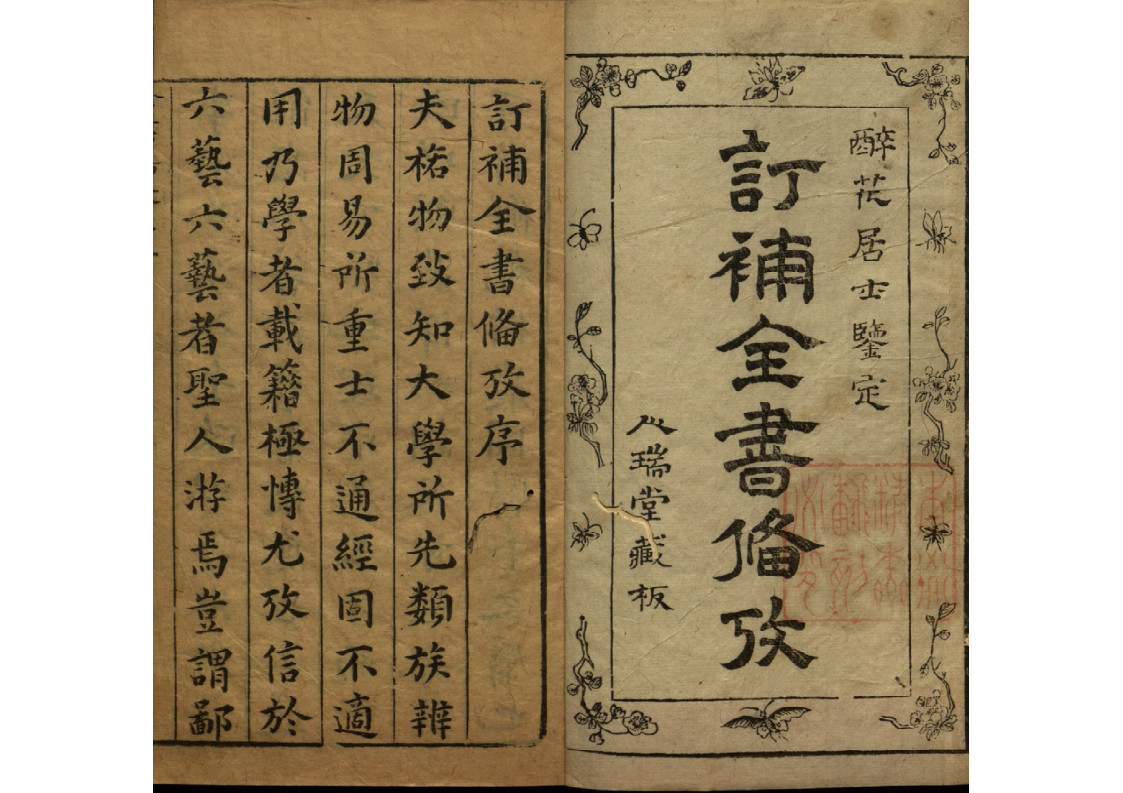 醉花居士鑒定
訂補全書俻攷
人瑞堂藏板
訂補全書俻攷序
夫格物致知大學所先類族辨
物周易所重士不通經固不適
用乃學者載籍極愽尤攷信於
六藝六藝者聖人游焉豈謂鄙